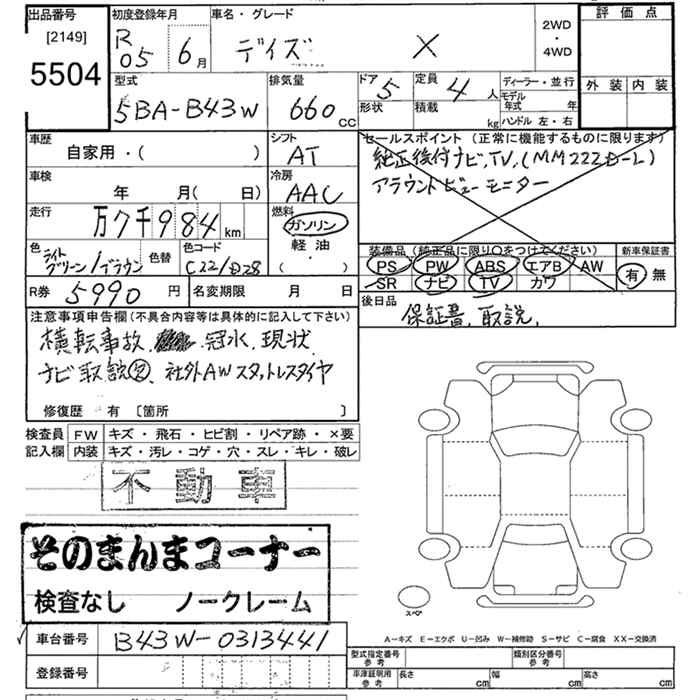 出品番号 初度登録年月 車名・グレード 2WD・4WD 評価点
[2149]
5504
R05 6月 デイズ X
外装 内装
型式 排気量 ドア 5 定員 4人 ディーラー・並行
5BA-B43W 660cc 形状 積載 kg モデル年式 年
ハンドル 左・右
車歴 シフト セールスポイント (正常に機能するものに限ります)
自家用・( ) AT 純正後付ナビ,TV,(MM222D-L)
車検 冷房 アラウンドビューモニター
年 月( 日) AAC
走行 燃料
万7千984km ガソリン
軽油
( ・ )
色 ライトグリーン/ブラウン 色替 色コード C221/D28
装備品 (純正品に限り○をつけてください) 新車保証書
PS PW ABS エアB AW 有・無
SR ナビ TV カワ
R券 5990円 名変期限 月 日
後日品
保証書,取説,
注意事項申告欄(不具合内容等は具体的に記入して下さい)
横転事故, 冠水,現状
ナビ取説, 社外AWスタットレスタイヤ
修復歴・有 [箇所 ]
検査員 FW キズ・飛石・ヒビ割・リペア跡・×要
記入欄 内装 キズ・汚レ・コゲ・穴・スレ・キレ・破レ
不動車
そのまんまコーナー
検査なし ノークレーム
スペア
A-キズ E-エクボ U-凹み W-補修跡 S-サビ C-腐食 XX-交換済
車台番号 B43W-0313441
登録番号
型式指定番号 参考 類別区分番号 参考
車庫証明用 参考 長さ cm 幅 cm 高さ cm